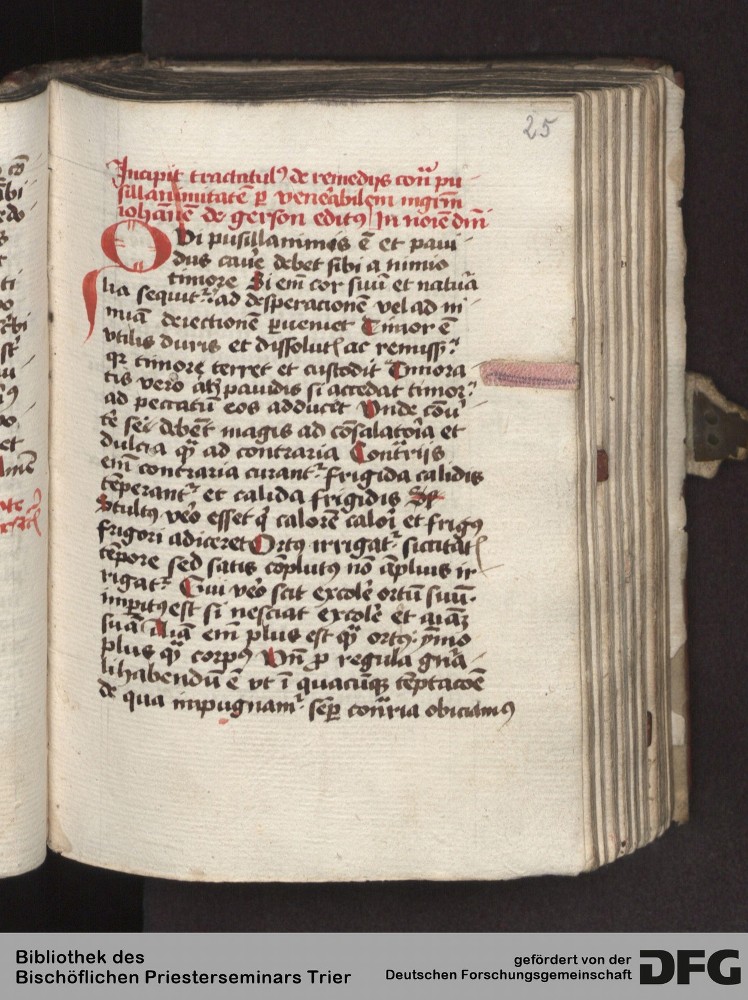 25
Incipit tractatulꝰ de remedijs cont᷑ pu
sillanimitatē ꝑ venerabilem mgr̄m
iohānē de gerson editꝰ In noīe dm̄
Qvi pusillanimis ē et paui
dus cauē debet sibi a nimio
timore Si em̄ cor suū et natura
lia sequit᷑ ad desperacionē vel ad ni
miā deiectionē ꝑueniet Timor ē
vtilis duris et dissolutꝭ ac remissꝭ
qꝛ timore terret et custodit Timora
tis vero atqꝫ pauidis si accedat timor
ad peccatū eos adducit Vnde
debēt magis ad cōsalatoīa et
dulcia qꝫ ad contraria Contrijs
em̄ contraria curant᷑ frigida calidis
tēperant᷑ et calida frigidis
Stultꝰ vēo esset qͥ calorē caloī et frigꝰ
frigori adiceret Ortꝰ irrigat᷑ siccitatꝭ
tēpore sed satis cōplutꝰ nō āplius ir
rigat᷑ Qui vēo scit excolē ortū suū
imꝑitꝰ est si nesciat excolē et aiāꝫ
suā Aīa em̄ plus est qꝫ ortꝰ ymo
plus qꝫ corpꝰ Vn̄ ꝓ regula gnā
li habendū ē vt ī quacūqꝫ tēptacōē
de qua impugnam᷑ semꝑ cont᷑ria obiciamꝰ
Bibliothek des
Bischöflichen Priesterseminars Trier
gefördert von der
Deutschen Forschungsgemeinschaft
DFG